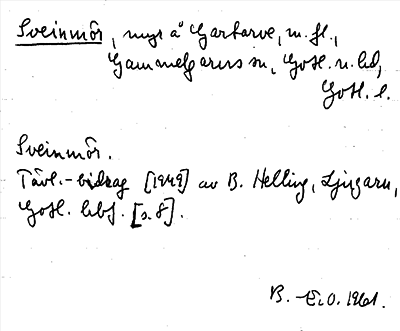 Sveinmór, myr å Gartarve, m. fl.,
Gammelgarns sn, Gotl. n. hd,
Gotl. l.
Sveinmór.
Tävl.-bidrag [1949] av B. Helling, Ljugarn,
Gotl. [s. 8].
B. E. O. 1961.